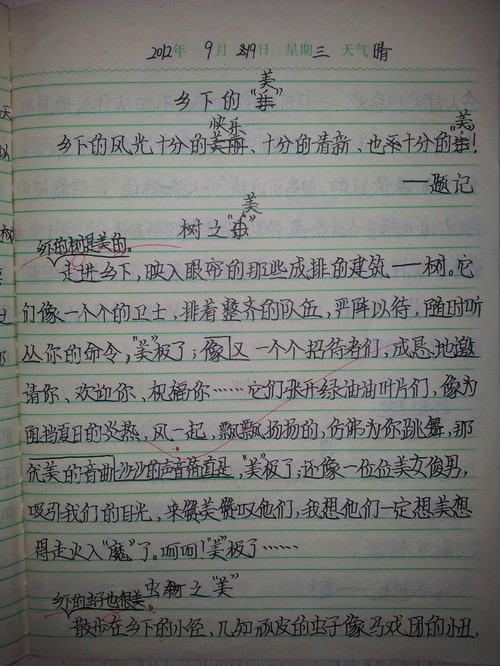 2012年 9月 19日 星期三 天气晴
乡下的“美”
乡下的风光十分的快乐、十分的清新、也还十分的“美”!
——题记
树之“美”
乡下的树是美的。
走进乡下,映入眼帘的那些成排的建筑——树。它
们像一个个的卫士,排着整齐的队伍,严阵以待,随时听
从你的命令,“美”极了;像又一个个招待者们,成恳地邀
请你、欢迎你、祝福你……它们张开绿油油叶片们,像为
阻挡夏日的炎热,风一起,飘飘扬扬的,仿佛为你跳舞,那
优美的音曲沙沙的声音简直甚,“美”极了;还像一位位美女俊男,
吸引我们的目光,来赞美赞叹他们,我想他们一定想美想
得走火入“魔”了。呵呵!“美”极了……
虫之“美”
乡下的虫子也很美。
散步在乡下的小径,几知顽皮的虫子像马戏团的小丑,